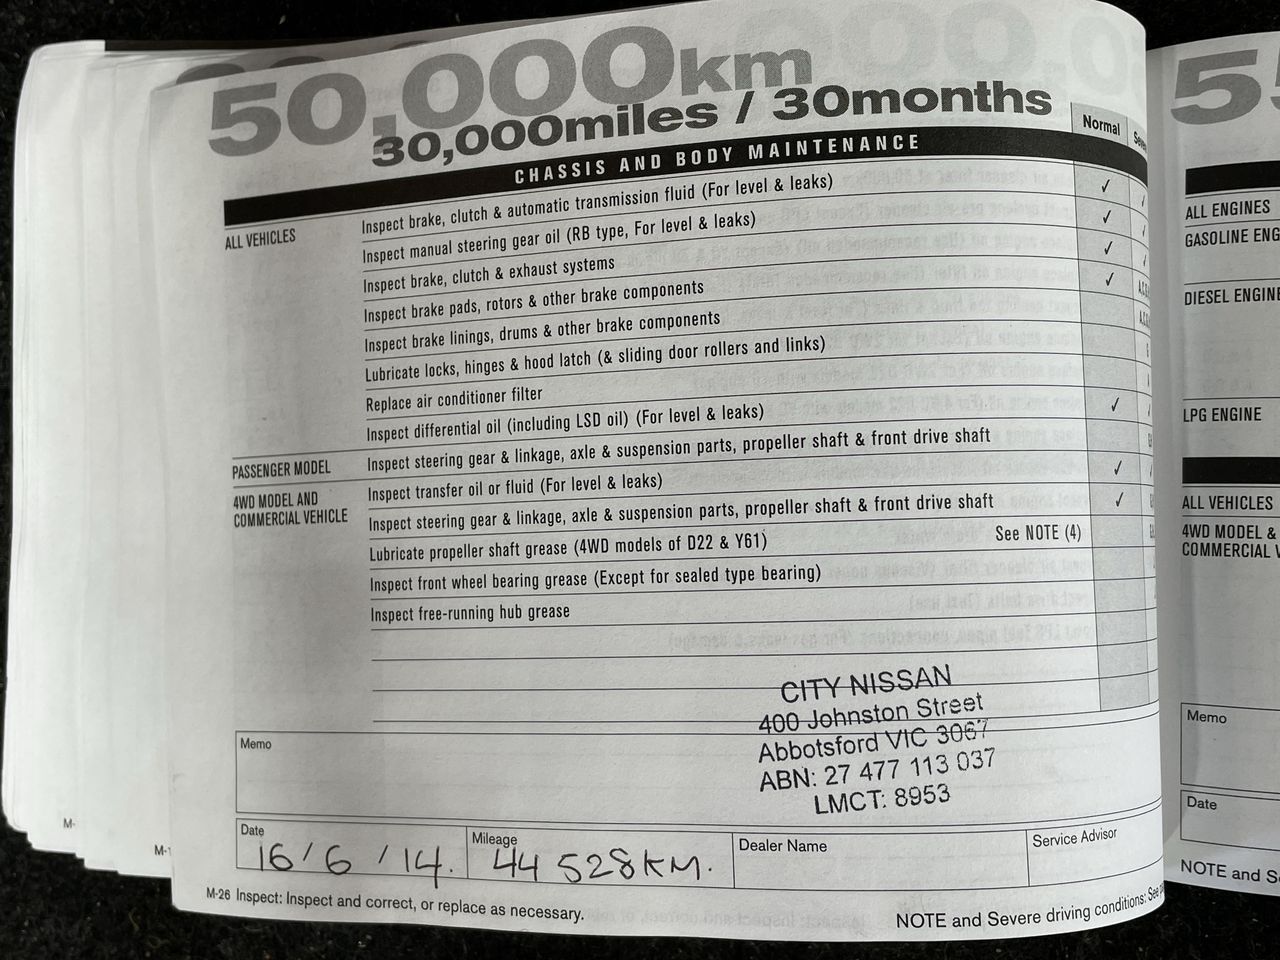 50,000km
30,000miles / 30months
Normal
CHASSIS AND BODY MAINTENANCE
ALL VEHICLES
Inspect brake, clutch & automatic transmission fluid (For level & leaks) ✓
Inspect manual steering gear oil (RB type, For level & leaks) ✓
Inspect brake, clutch & exhaust systems ✓
Inspect brake pads, rotors & other brake components ✓
Inspect brake linings, drums & other brake components
Lubricate locks, hinges & hood latch (& sliding door rollers and links)
Replace air conditioner filter
Inspect differential oil (including LSD oil) (For level & leaks) ✓
PASSENGER MODEL
Inspect steering gear & linkage, axle & suspension parts, propeller shaft & front drive shaft
4WD MODEL AND
COMMERCIAL VEHICLE
Inspect transfer oil or fluid (For level & leaks) ✓
Inspect steering gear & linkage, axle & suspension parts, propeller shaft & front drive shaft ✓
Lubricate propeller shaft grease (4WD models of D22 & Y61) See NOTE (4)
Inspect front wheel bearing grease (Except for sealed type bearing)
Inspect free-running hub grease
CITY NISSAN
400 Johnston Street
Abbotsford VIC 3067
ABN: 27 477 113 037
LMCT: 8953
Memo
Date
16/6/14.
Mileage
44 528KM.
Dealer Name
Service Advisor
M-26 Inspect: Inspect and correct, or replace as necessary.
NOTE and Severe driving conditions: See
ALL ENGINES
GASOLINE
DIESEL ENGINE
LPG ENGINE
ALL VEHICLES
4WD MODEL &
COMMERCIAL
Memo
Date
NOTE and